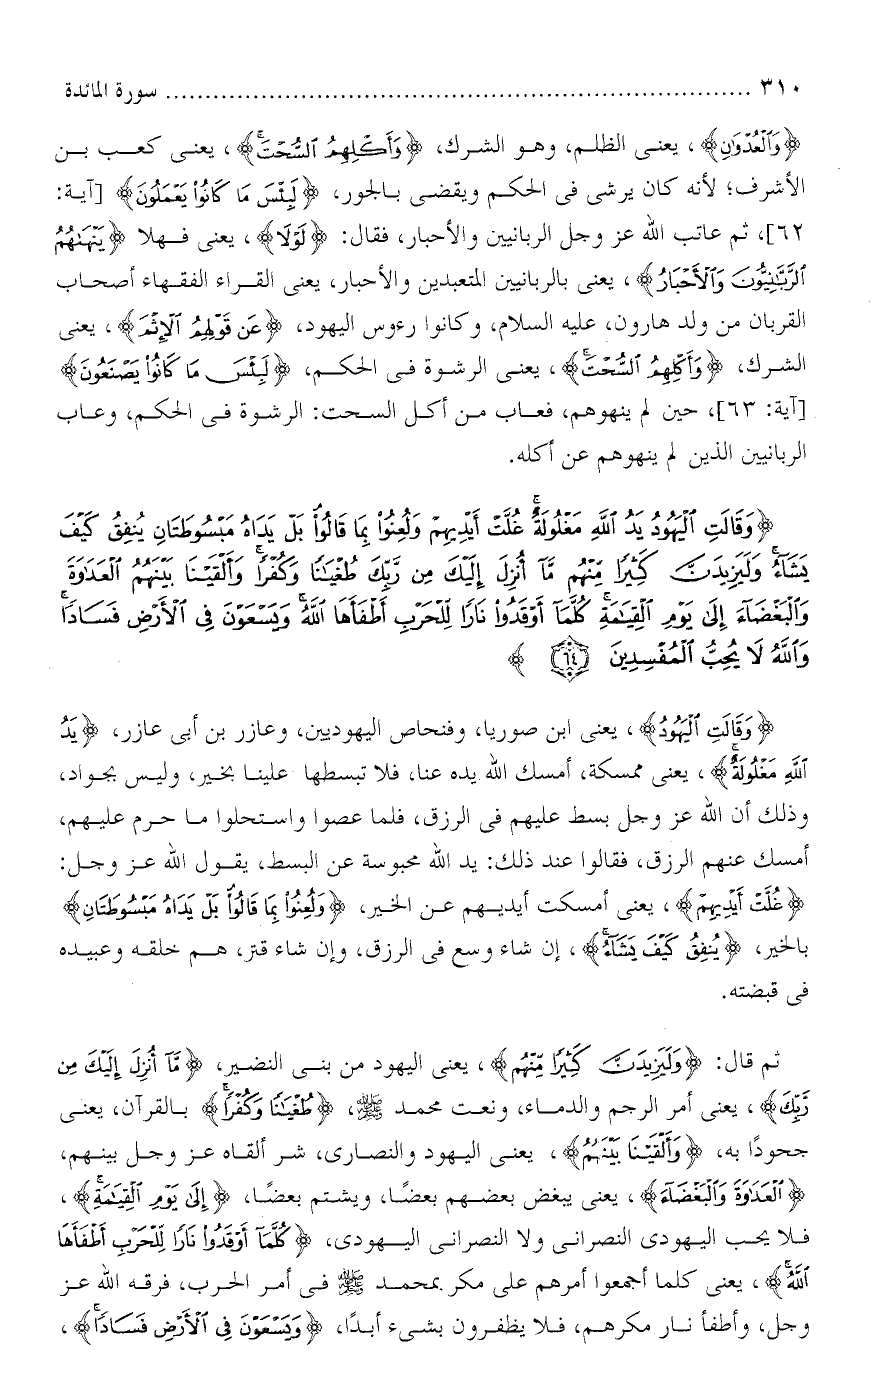 ٣١٠ ........................................................................ سورة المائدة
﴿وَٱلۡعُدۡوَٰنِ﴾، يعنى الظلم، وهو الشرك، ﴿وَأَكۡلِهِمُ ٱلسُّحۡتَۚ﴾، يعنى كعب بن
الأشرف؛ لأنه كان يرشى فى الحكم ويقضى بالجور، ﴿لَبِئۡسَ مَا كَانُواْ يَعۡمَلُونَ﴾ [آية:
٦٢]، ثم عاتب الله عز وجل الربانيين والأحبار، فقال: ﴿لَوۡلَا﴾، يعنى فهلا ﴿يَنۡهَىٰهُمُ
ٱلرَّبَّٰنِيُّونَ وَٱلۡأَحۡبَارُ﴾، يعنى بالربانيين المتعبدين والأحبار، يعنى القراء الفقهاء أصحاب
القربان من ولد هارون، عليه السلام، وكانوا رءوس اليهود، ﴿عَن قَوۡلِهِمُ ٱلۡإِثۡمَ﴾، يعنى
الشرك، ﴿وَأَكۡلِهِمُ ٱلسُّحۡتَۚ﴾، يعنى الرشوة فى الحكم، ﴿لَبِئۡسَ مَا كَانُواْ يَصۡنَعُونَ﴾
[آية: ٦٣]، حين لم ينهوهم، فعاب من أكل السحت: الرشوة فى الحكم، وعاب
الربانيين الذين لم ينهوهم عن أكله.
﴿وَقَالَتِ ٱلۡيَهُودُ يَدُ ٱللَّهِ مَغۡلُولَةٌۚ غُلَّتۡ أَيۡدِيهِمۡ وَلُعِنُواْ بِمَا قَالُواْۘ بَلۡ يَدَاهُ مَبۡسُوطَتَانِ يُنفِقُ كَيۡفَ
يَشَآءُۚ وَلَيَزِيدَنَّ كَثِيرٗا مِّنۡهُم مَّآ أُنزِلَ إِلَيۡكَ مِن رَّبِّكَ طُغۡيَٰنٗا وَكُفۡرٗاۚ وَأَلۡقَيۡنَا بَيۡنَهُمُ ٱلۡعَدَٰوَةَ
وَٱلۡبَغۡضَآءَ إِلَىٰ يَوۡمِ ٱلۡقِيَٰمَةِۚ كُلَّمَآ أَوۡقَدُواْ نَارٗا لِّلۡحَرۡبِ أَطۡفَأَهَا ٱللَّهُۚ وَيَسۡعَوۡنَ فِى ٱلۡأَرۡضِ فَسَادٗاۚ
وَٱللَّهُ لَا يُحِبُّ ٱلۡمُفۡسِدِينَ ٦٤ ﴾
﴿وَقَالَتِ ٱلۡيَهُودُ﴾، يعنى ابن صوريا، وفنحاص اليهوديين، وعازر بن أبى عازر، ﴿يَدُ
ٱللَّهِ مَغۡلُولَةٌۚ﴾، يعنى ممسكة، أمسك الله يده عنا، فلا تبسطها علينا بخير، وليس بجواد،
وذلك أن الله عز وجل بسط عليهم فى الرزق، فلما عصوا واستحلوا ما حرم عليهم،
أمسك عنهم الرزق، فقالوا عند ذلك: يد الله محبوسة عن البسط، يقول الله عز وجل:
﴿غُلَّتۡ أَيۡدِيهِمۡ﴾، يعنى أمسكت أيديهم عن الخير، ﴿وَلُعِنُواْ بِمَا قَالُواْۘ بَلۡ يَدَاهُ مَبۡسُوطَتَانِ﴾
بالخير، ﴿يُنفِقُ كَيۡفَ يَشَآءُۚ﴾، إن شاء وسع فى الرزق، وإن شاء قتر، هم خلقه وعبيده
فى قبضته.
ثم قال: ﴿وَلَيَزِيدَنَّ كَثِيرٗا مِّنۡهُم﴾، يعنى اليهود من بنى النضير، ﴿مَّآ أُنزِلَ إِلَيۡكَ مِن
رَّبِّكَ﴾، يعنى أمر الرجم والدماء، ونعت محمد ﷺ، ﴿طُغۡيَٰنٗا وَكُفۡرٗاۚ﴾ بالقرآن، يعنى
جحودًا به، ﴿وَأَلۡقَيۡنَا بَيۡنَهُمُ﴾، يعنى اليهود والنصارى، شر ألقاه عز وجل بينهم،
﴿ٱلۡعَدَٰوَةَ وَٱلۡبَغۡضَآءَ﴾، يعنى يبغض بعضهم بعضًا، ويشتم بعضًا، ﴿إِلَىٰ يَوۡمِ ٱلۡقِيَٰمَةِۚ﴾،
فلا يحب اليهودى النصرانى ولا النصرانى اليهودى، ﴿كُلَّمَآ أَوۡقَدُواْ نَارٗا لِّلۡحَرۡبِ أَطۡفَأَهَا
ٱللَّهُۚ﴾، يعنى كلما أجمعوا أمرهم على مكر بمحمد ﷺ فى أمر الحرب، فرقه الله عز
وجل، وأطفأ نار مكرهم، فلا يظفرون بشىء أبدًا، ﴿وَيَسۡعَوۡنَ فِى ٱلۡأَرۡضِ فَسَادٗاۚ﴾،